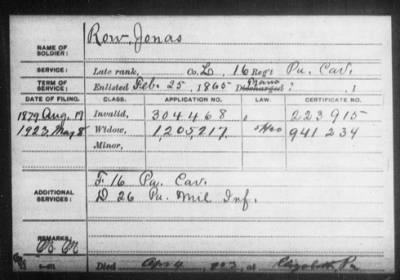 Row, Jonas
NAME OF SOLDIER:
SERVICE: Late rank, Co. L, 16 Reg't Pa. Cav.
TERM OF SERVICE: Enlisted Feb. 25, 1865 Discharged :
DATE OF FILING. CLASS. APPLICATION NO. LAW. CERTIFICATE NO.
1879 Aug. 19 Invalid, 304468 223915
1923, May 8 Widow, 1,205,217 941234
Minor,
ADDITIONAL SERVICES: F. 16 Pa. Cav.
D 26 Pa. Mil Inf.
REMARKS:
Died Apr 4 at Elizabeth Pa